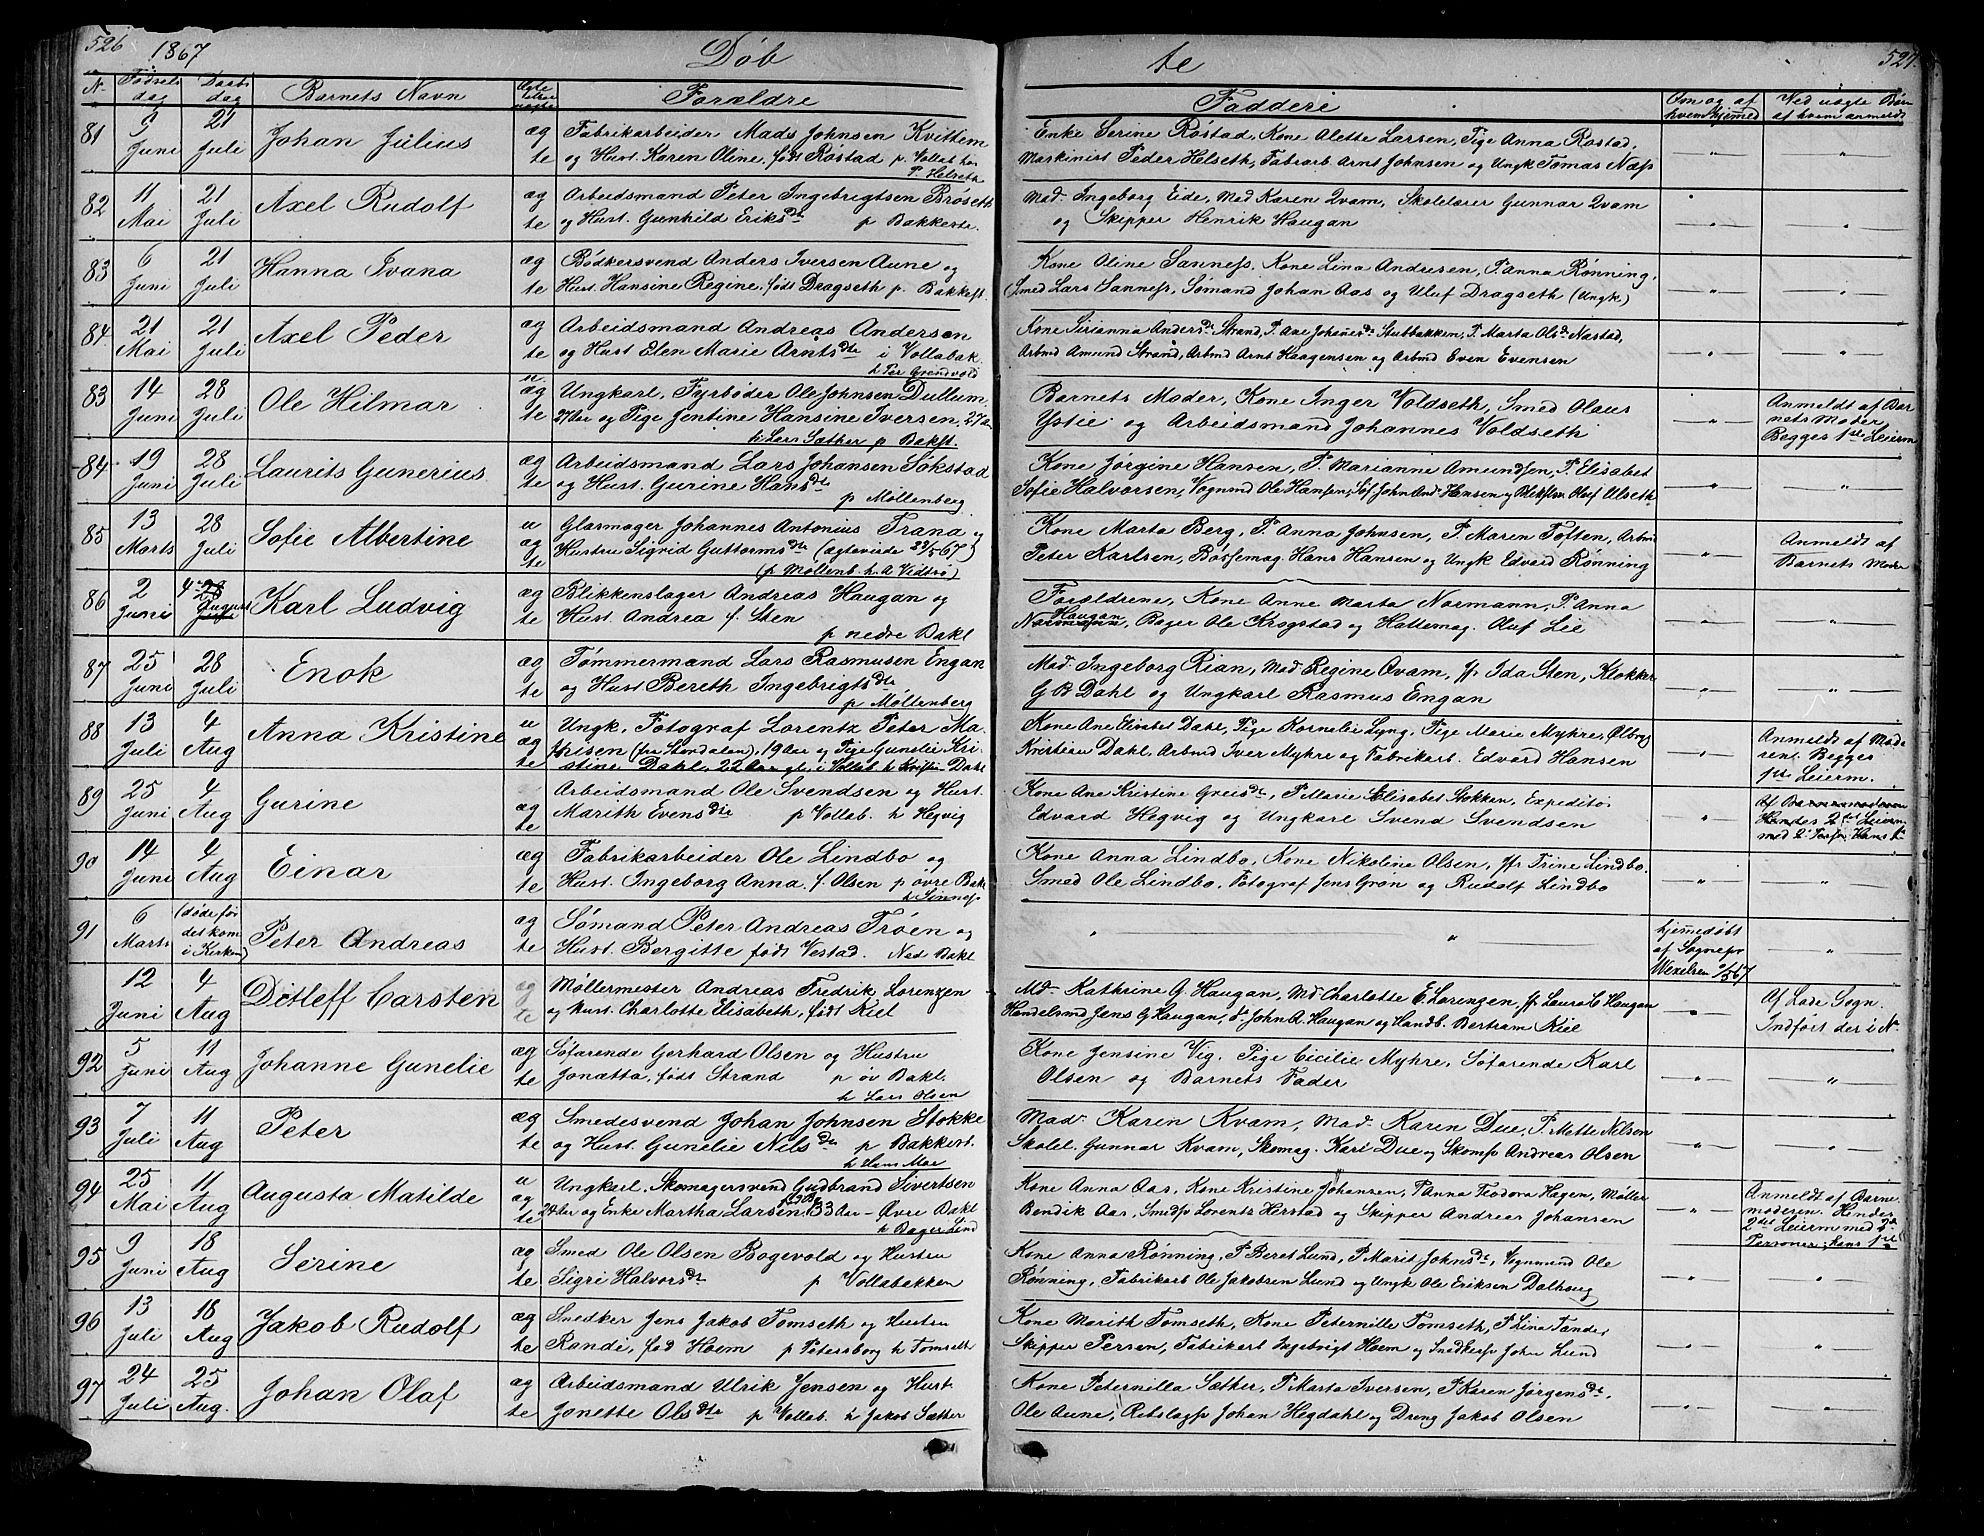 526 1867 Døb
te 527.
N. Fødsels dag Daabs dag Barnets Navn Ægte eller uægte Forældre
Fadderi Om og af hvem hjemed Ved uægte Børn af hvem anmeldt
81 9 Juni 21 Juli Johan Julius æg te Fabrikarbeider Mads Johnsen Kvittem
og Hust. Karen Oline, født Røstad p. Vollab hos
P Helseth
Enke Serine Røstad, Kone Alette Larsen, Pige Anna Røstad,
Maskinist Peder Helseth, Fabrarb Arnt Johnsen og Ungk Tomas Næss
82 11 Mai 21 Juli Axel Rudolf æg te Arbeidsmand Peter Ingebrigtsen Brøseth
og Hust. Gunhild Eriksdt p Bakkeste.
Mad. Ingeborg Eide, Mad Karen Qvam, Skolelærer Gunnar Qvam
og Skipper Henrik Haugan
83 6 Juni 21 Juli Hanna Ivana æg te Bødkersvend Anders Iversen Aune og
Hust. Hansine Regine, født Dragseth p. Bakkest.
Kone Oline Sanness, Kone Lina Andresen, P. Anna Rønning,
(Smed Lars Sanness, Sømand Johan Aas og Uluf Dragseth (Ungk)
84 21 Mai 21 Juli Axel Peder æg te Arbeidsmand Andreas Andersen
og Hust Elen Marie Arntsdtr i Vollabak.
h Per Grendvold
Kone Sirianna Andersdt Strand, P. Ane Johanesdt Stubbakken, P. Marta Olsdt Nøstad,
Arbmd Amund Strand, Arbmd Arnt Haagensen og Arbmd Even Evensen
83 14 Juni 28 Juli Ole Hilmar u. æg te Ungkarl, Fyrbøder Ole Johnsen Dullum,
27 Aar og Pige Jentine Hansine Iversen, 27 Aar
h Lars Sæther p Bakst.
Barnets Moder, Kone Inger Voldseth, Smed Olaus
Ystie og Arbeidsmand Johannes Voldseth
Anmeldt af Barnets Moder
Begges 1ste Leierm
84 19 Juni 28 Juli Laurits Gunerius æg te Arbeidsmand Lars Johansen Sökstad
og Hust. Gurine Hansdtr
p Møllenberg
Kone Jørgine Hansen, P. Marianne Amundsen, P. Elisabet
Sofie Halvorsen, Vognmd Ole Hansen, Søf John And. Hansen og Olaf Ulseth
85 13 Marts 28 Juli Sofie Albertine u æg te Glasmager Johannes Antonius Trana og
Hustru Sigrid Guttormsdtr (ægteviede 567)
(p Møllenb. h. A Vidtrø)
Kone Marta Berg, P. Anna Johnsen, P. Maren Toften, Arbmd
Peter Karlsen, Bøssemag. Hans Hansen og Ungk Edvard Rønning
Anmeldt af
Barnets Moder
86 2 Juni 4 28 August Juli Karl Ludvig æg te Blikkenslager Andreas Haugan og
Hust. Andrea f. Sten
p nedre Bakl
Forældrene, Kone Anne Marta Normann, P. Anna
Haugan
Normann, Bager Ole Krogstad og Hattemag. Oluf Lie
87 25 Juni 28 Juli Enok æg te Tømmermand Lars Rasmusen Engan
og Hust Bereth Ingebrigtsdtr
p Møllenberg
Mad. Ingeborg Rian, Mad. Regine Qvam, Jfr Ida Sten, Klokker
G B Dahl og Ungkarl Rasmus Engan
88 13 Juli 4 Aug Anna Kristine u æg te Ungk. Fotograf Lorentz Peter Ma-
thisen (fra Stordalen), 19 Aar og Pige Gunelie Kri-
stine Dahl, 22 Aar gl. i Vollab. h Kristin Dahl
Kone Ane Elisabet Dahl, Pige Kornelie Lyng, Pige Marie Myhre, Ølbryg
Kristian Dahl, Arbmd Iver Myhre og Fabrikarb. Edvard Hansen
Anmeldt af Mode
ren. Begges
1ste Leierm.
89 25 Juni 4 Aug Gurine æg te Arbeidsmand Ole Svendsen og Hust.
Marith Evensdtr p Vollab. h Hegvig
Kone Ane Kristine Greisdt, P Marie Elisabet Stokken, Expeditør
Edvard Hegvig og Ungkarl Svend Svendsen
Af Barnemoderen
Hendes 2det Leierm
med 2 Hans 1ste
90 14 Juni 4 Aug Einar æg te Fabrikarbeider Ole Lindbo og
Hust. Ingeborg Anna, f. Olsen p øvre Bakl
h Sinness
Kone Anna Lindbo, Kone Nikoline Olsen, Jfr Trine Lindbo,
Smed Ole Lindbo, Fotograf Jens Grøn og Rudolf Lindbo
91 6 Marts (døde før det kom i Kirken) Peter Andreas æg te Sømand Peter Andreas Trøen og
Hust. Bergitte født Vestad. Ned Bakl
hjemedøbt
af Sognepr
Wexelsen 67
12 Juni 4 Aug Ditleff Carsten æg te Møllermester Andreas Fredrik Lorenzen
og Hust. Charlotte Elisabeth, født Kiel
Md. Kathrine G. Haugan, Md Charlotte E. Lorenzen, Jfr Laura C Haugan
Handelsmd Jens G Haugan, John A. Haugan og Handb. Bertram Kiel
Af Lade Sogn.
Indført der i N
92 5 Juni 11 Aug Johanne Gunelie æg te Søfarende Gerhard Olsen og Hustru
Jonætta, født Strand p øv Bakl.
h Lars Olsen
Kone Jensine Vig, Pige Cicilie Myhre, Søfarende Karl
Olsen og Barnets Fader
93 7 Juli 11 Aug Peter æg te Smedesvend Johan Johnsen Stokke
og Hust. Gunelie Nilsdtr p Bakkest.
h Hans Moe
Mad. Karen Kvam, Mad. Karen Due, P. Mette Nilson
Skolel. Gunnar Kvam, Skomag. Karl Due og Skoms Andreas Olsen
94 25 Mai 11 Aug Augusta Matilde u æg te Ungkarl, Skomagersvend Gudbrand Sivertsen
24 Aar og Enke Martha Larsen 33 Aar - Øvre Bakl
h Bager Lind
Kone Anna Aas, Kone Kristine Johansen, P Anna Teodora Hagen, Møller
Bendik Aas, Smeds Lorentz Herstad og Skipper Andreas Johansen
Anmeldt af Barne
moderen. Hendes
2det Leierm med 2de
Personer, hans 1ste
95 9 Juni 18 Aug Serine æg te Smed Ole Olsen Bogevold og Hustru
Sigri Halvorsdtr p Vollabakken
Kone Anna Rønning, P Beret Lund, P. Marit Johnsdt, Vognmand Ole
Rønning, Fabrikarb Ole Jakobsen Lund og Ungk Ole Eriksen Dalhaug
96 13 Juli 18 Aug Jakob Rudolf æg te Snedker Jens Jakob Tomseth og Hustru
Randi, fød Hoem p Petersborg h Tomseth
Kone Merith Tomseth, Kone Peternille Tomseth, P Lina Tander
Skipper Persen, Fabrikarb Ingebrigt Hoem og Snedkers John Lund
97 24 Juli 25 Aug. Johan Olaf æg te Arbeidsmand Ulrik Jensen og Hust.
Jonette Olsdtr p Vollab. h Jakob Sæther
Kone Peternilla Sæther, P Marta Iversen, P Karen Jørgensdt,
Ole Aune, Rebslags Johan Hegdahl og Dreng Jakob Olsen